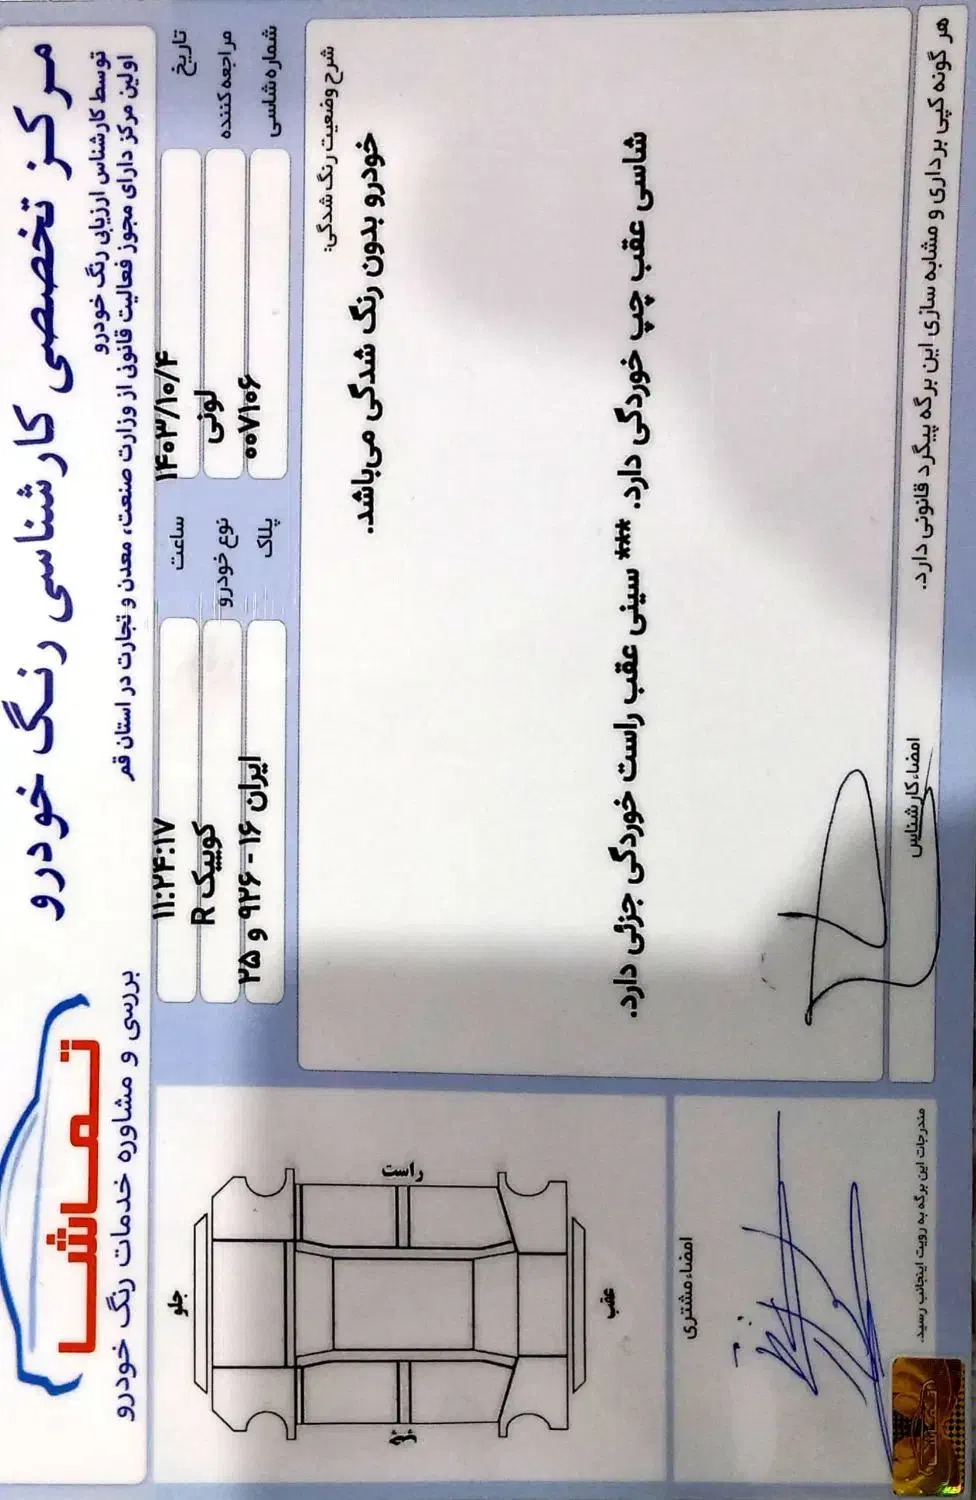 مرکز تخصصی کارشناسی رنگ خودرو
توسط کارشناس ارزیابی رنگ خودرو
اولین مرکز دارای مجوز فعالیت قانونی از وزارت صنعت، معدن و تجارت در استان قم
تماشا
بررسی و مشاوره خدمات رنگ خودرو
تاریخ ۱۴۰۳/۱۰/۴ ساعت ۱۱:۲۴:۱۷
مراجعه کننده لونی نوع خودرو کوییک R
شماره شاسی ۰۰۷۱۰۶ پلاک ایران ۱۶ - ۹۲۶ و ۲۵
شرح وضعیت رنگ شدگی:
خودرو بدون رنگ شدگی می‌باشد.
شاسی عقب چپ خوردگی دارد. *** سینی عقب راست خوردگی جزئی دارد.
امضاء کارشناس
هر گونه کپی برداری و مشابه سازی این برگه پیگرد قانونی دارد.
جلو
راست
چپ
عقب
امضاء مشتری
مندرجات این برگه به رویت اینجانب رسید.